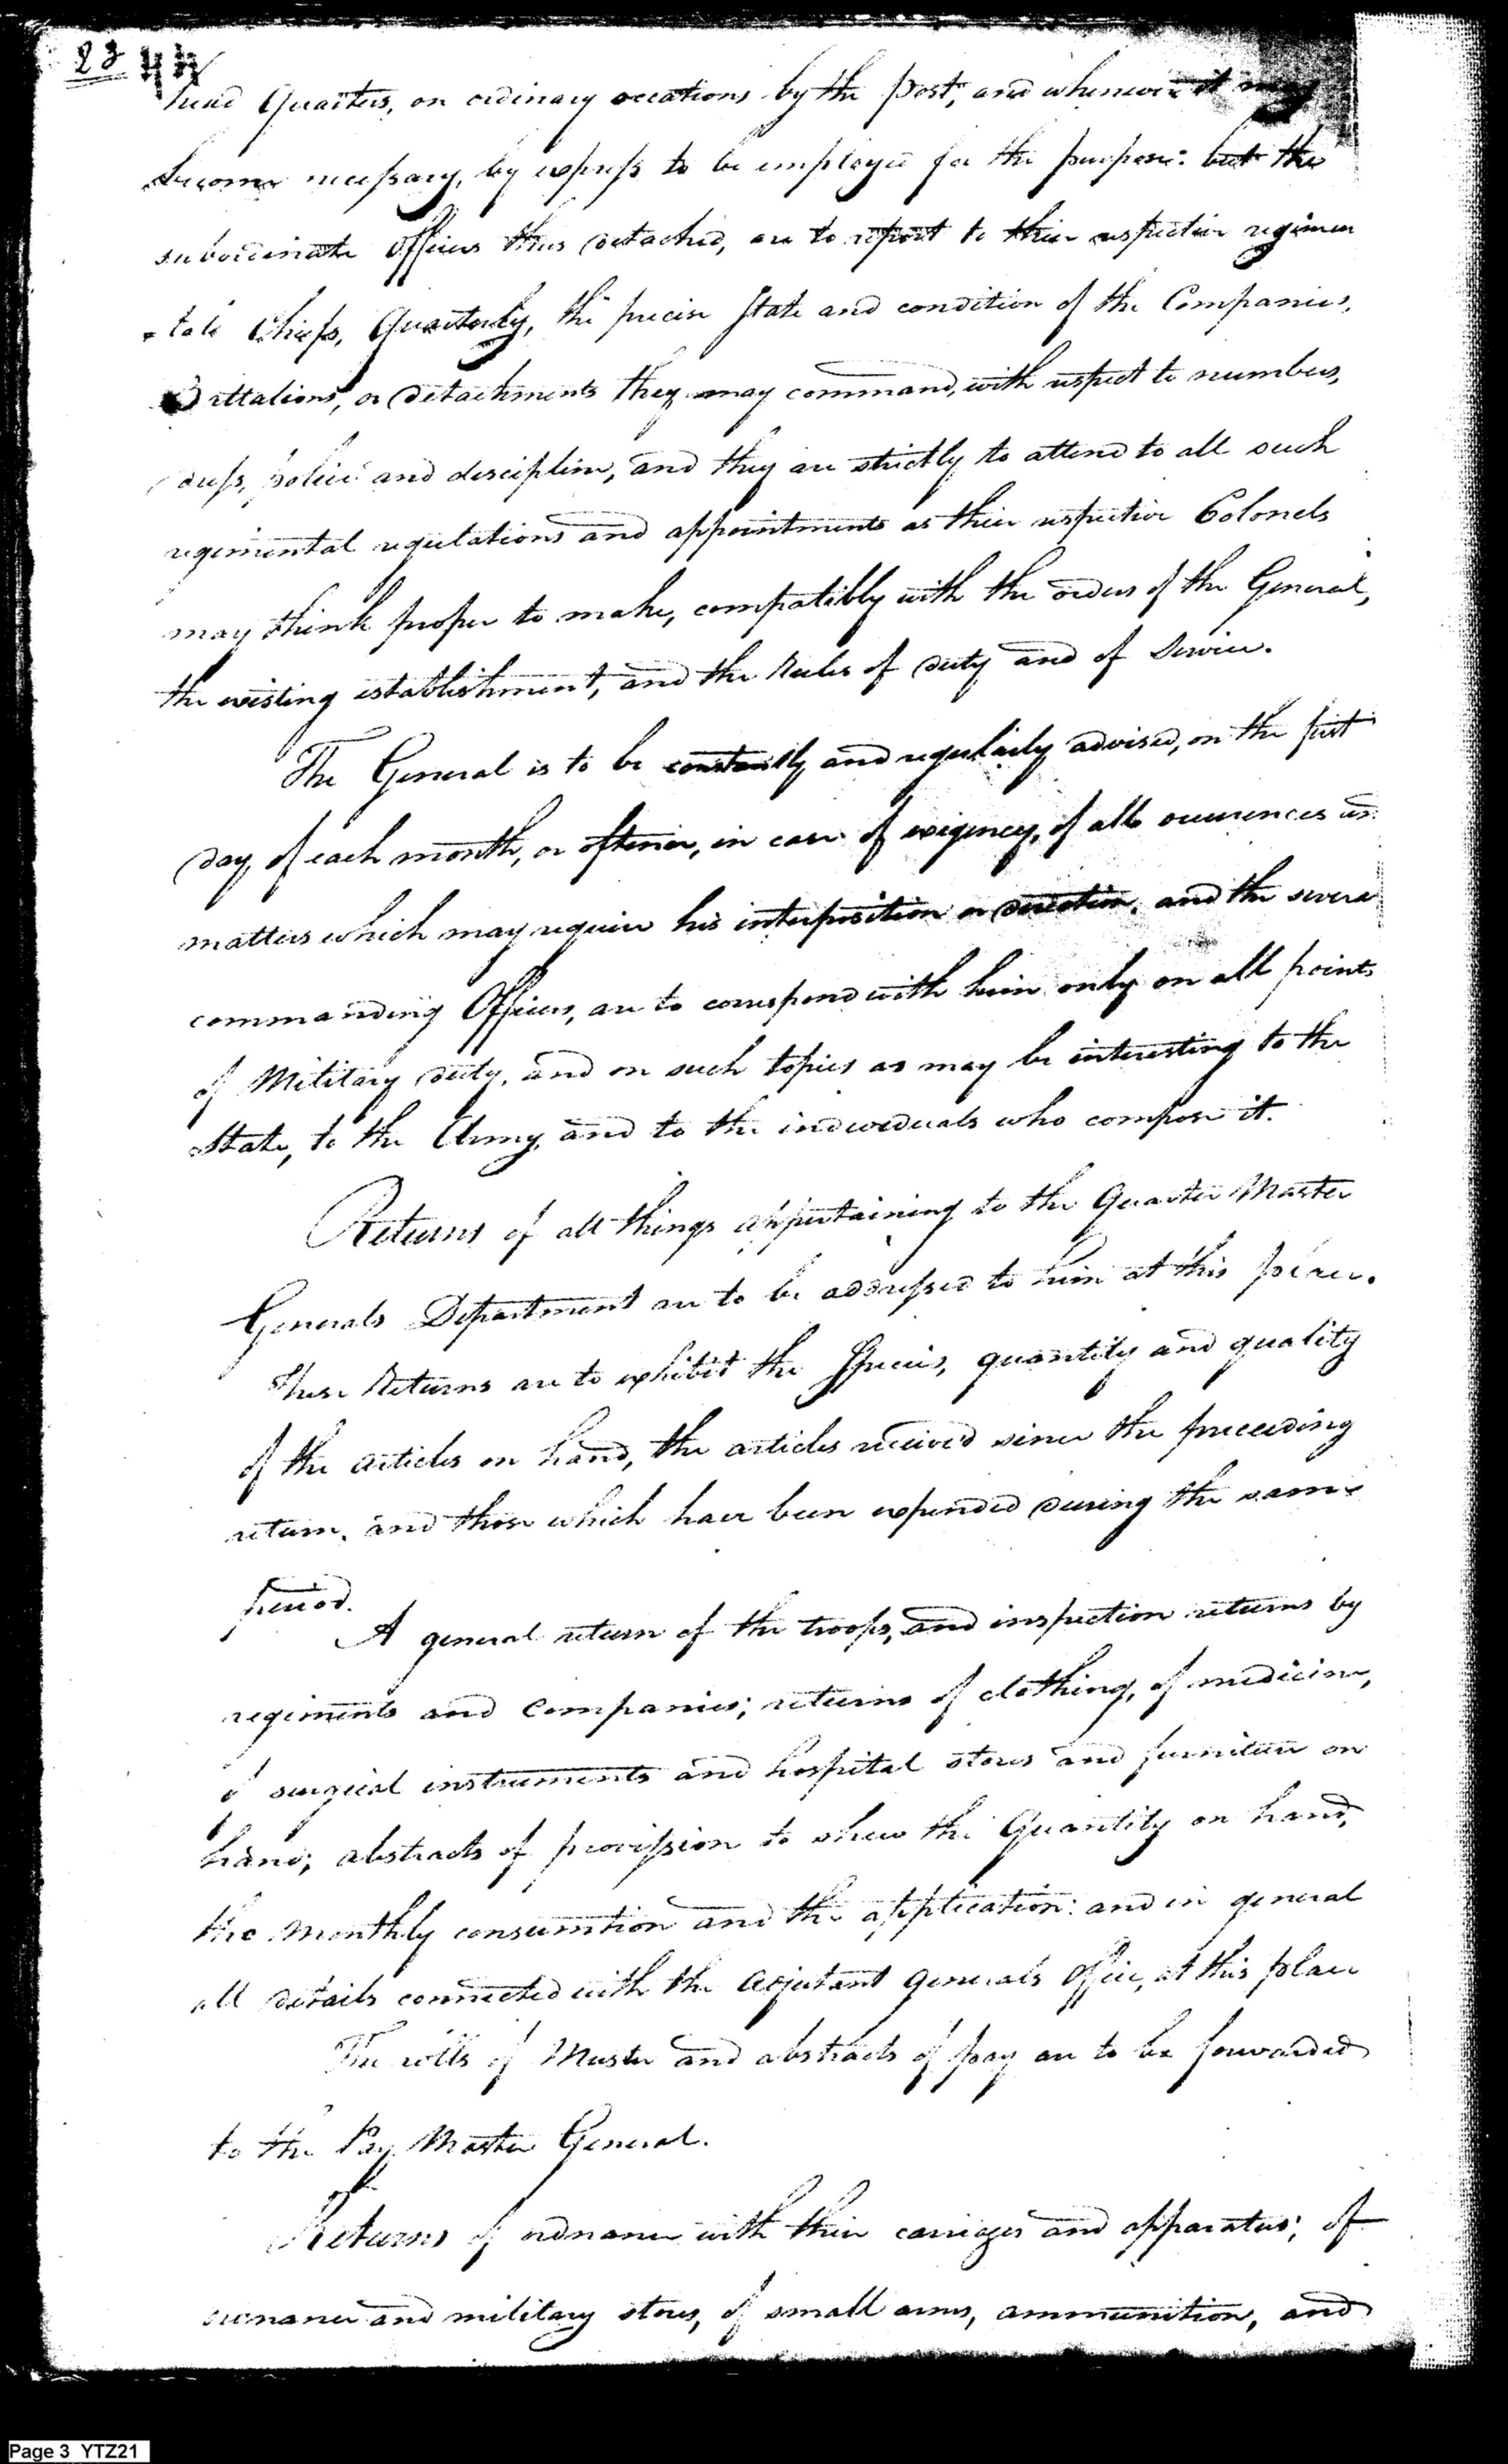 23
head Quarters, on ordinary occations by the post, and whenever it may
become necessary, by express to be employed for the purpose: but the
subordinate Officers thus detached, are to report to their respective regimen
=tal Chiefs, Quarterly, the precise State and condition of the Companies,
Battalions, or detachments they may command, with respect to numbers,
dress, police and discipline, and they are strictly to attend to all such
regimental regulations and appointments as their respective Colonels
may think proper to make, compatibly with the orders of the General,
the existing establishment, and the Rules of duty and of Service.
The General is to be constantly and regularly advised, on the first
day of each month, or oftener, in case of exigency, of all occurrences and
matters which may require his interposition or direction, and the several
commanding Officers, are to correspond with him only on all points
of Military duty, and on such topics as may be interesting to the
State, to the Army, and to the individuals who compose it.
Returns of all things appertaining to the Quarter Master
Generals Department are to be addressed to him at this place.
These Returns are to exhibit the Species, quantity and quality
of the articles on hand, the articles received since the preceeding
return, and those which have been expended during the same
period.
A general return of the troops, and inspection returns by
regiments and Companies; returns of clothing, of medicine,
of surgical instruments and hospital stores and furniture on
hand; abstracts of provission to shew the Quantity on hand,
the Monthly consumtion and the application: and in general
all details connected with the Adjutant Generals Office, at this place
The rolls of Muster and abstracts of pay are to be forwarded
to the Pay Master General.
Returns of ordnance with their carriages and apparatus; of
ordnance and military stores, of small arms, ammunition, and
Page 3 YTZ21